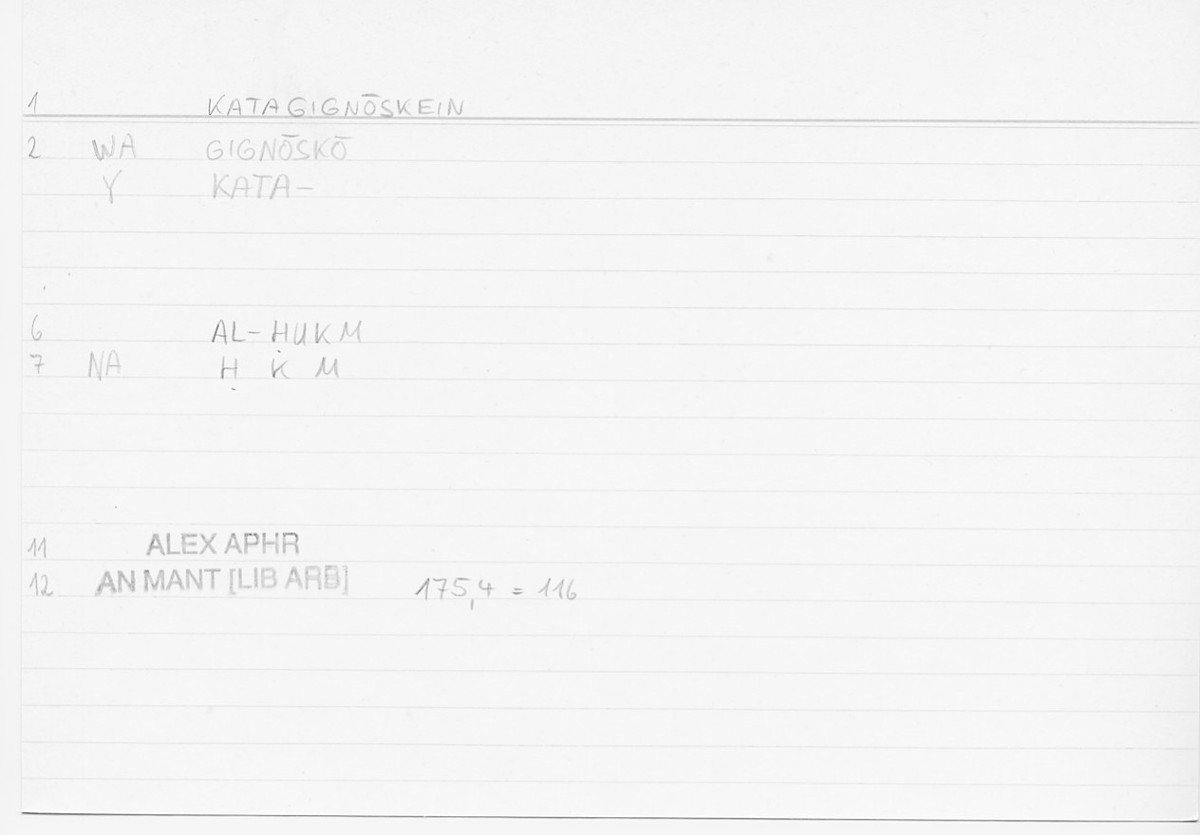 1 KATAGIGNŌSKEIN
2 WA GIGNŌSKŌ
Y KATA-
6 AL-ḤUKM
7 NA Ḥ K M
11 ALEX APHR
12 AN MANT [LIB ARB] 175,4 = 116